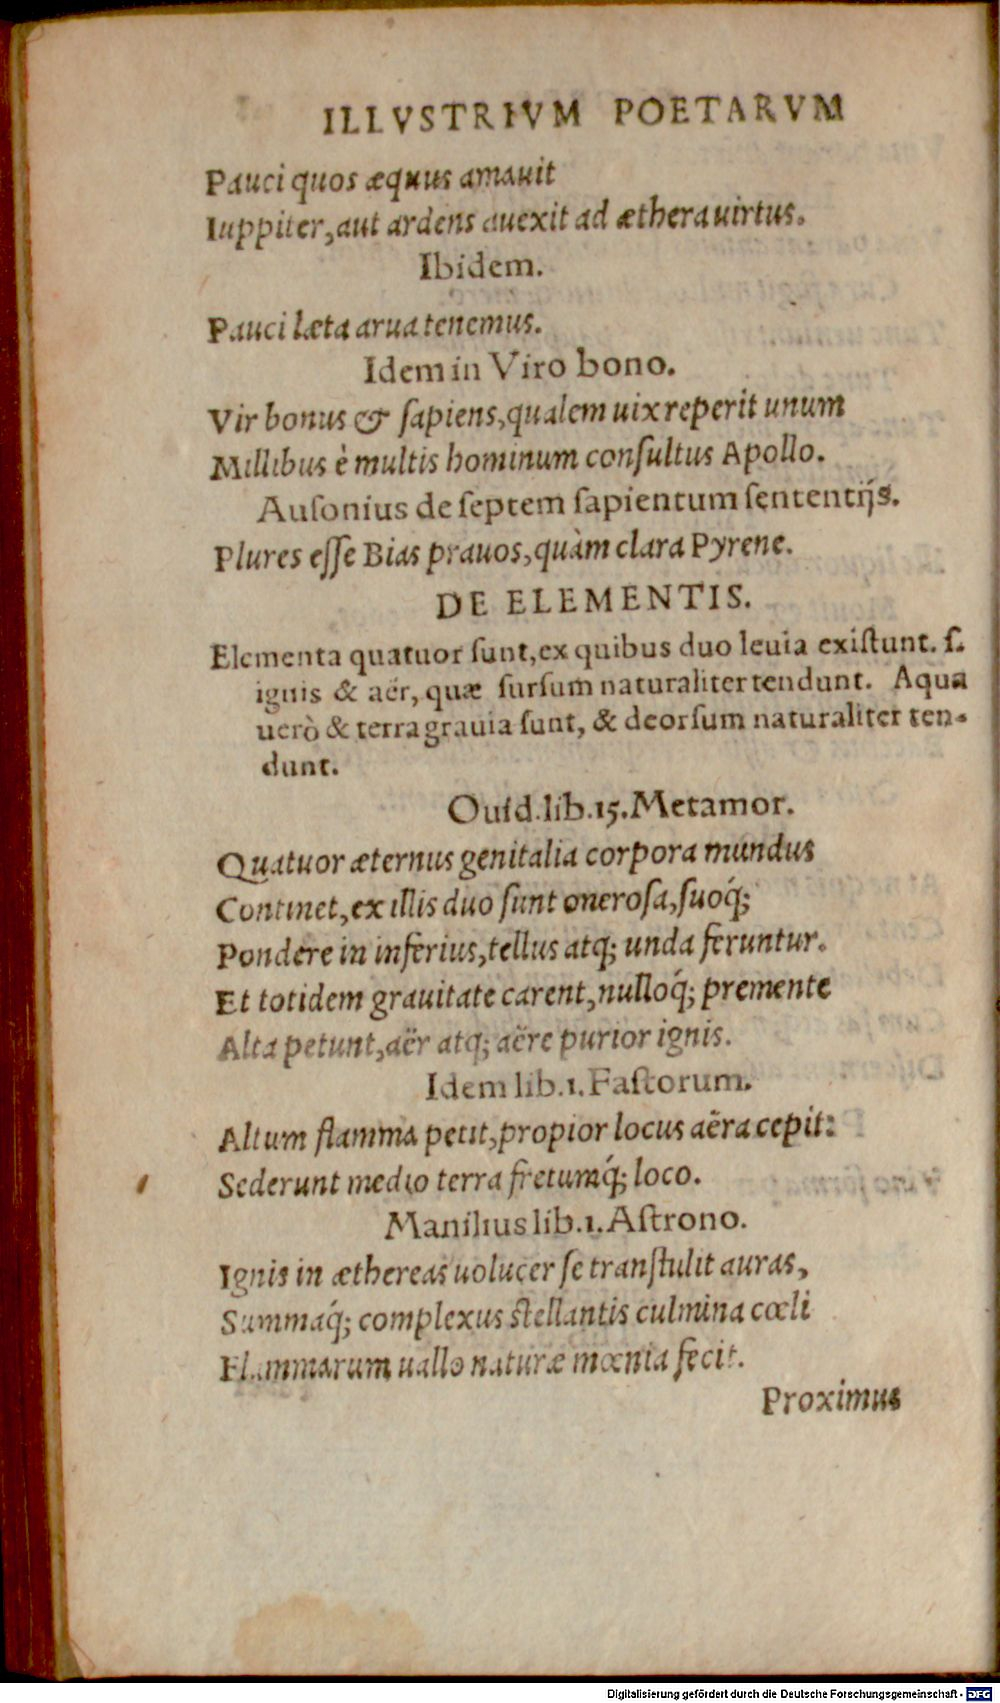 ILLVSTRIVM POETARVM
Pauci quos æquus amauit
Iuppiter, aut ardens auexit ad æthera uirtus.
Ibidem.
Pauci læta arua tenemus.
Idem in Viro bono.
Vir bonus & ſapiens, qualem uix reperit unum
Millibus è multis hominum conſultus Apollo.
Auſonius de ſeptem ſapientum ſententijs.
Plures eſſe Bias prauos, quàm clara Pyrene.
DE ELEMENTIS.
Elementa quatuor ſunt, ex quibus duo leuia exiſtunt. ſ.
ignis & aër, quæ ſurſum naturaliter tendunt. Aqua
uerò & terra grauia ſunt, & deorſum naturaliter ten-
dunt.
Ouid. lib. 15. Metamor.
Quatuor æternus genitalia corpora mundus
Continet, ex illis duo ſunt oneroſa, ſuoq́;
Pondere in inferius, tellus atq; unda feruntur.
Et totidem grauitate carent, nulloq́; premente
Alta petunt, aër atq; aëre purior ignis.
Idem lib. 1. Faſtorum.
Altum flamma petit, propior locus aëra cepit:
Sederunt medio terra fretumq́; loco.
Manilius lib. 1. Aſtrono.
Ignis in æthereas uolucer ſe tranſtulit auras,
Summaq́; complexus ſtellantis culmina cœli
Flammarum uallo naturæ mœnia fecit.
Proximus
Digitalisierung gefördert durch die Deutsche Forschungsgemeinschaft - DFG